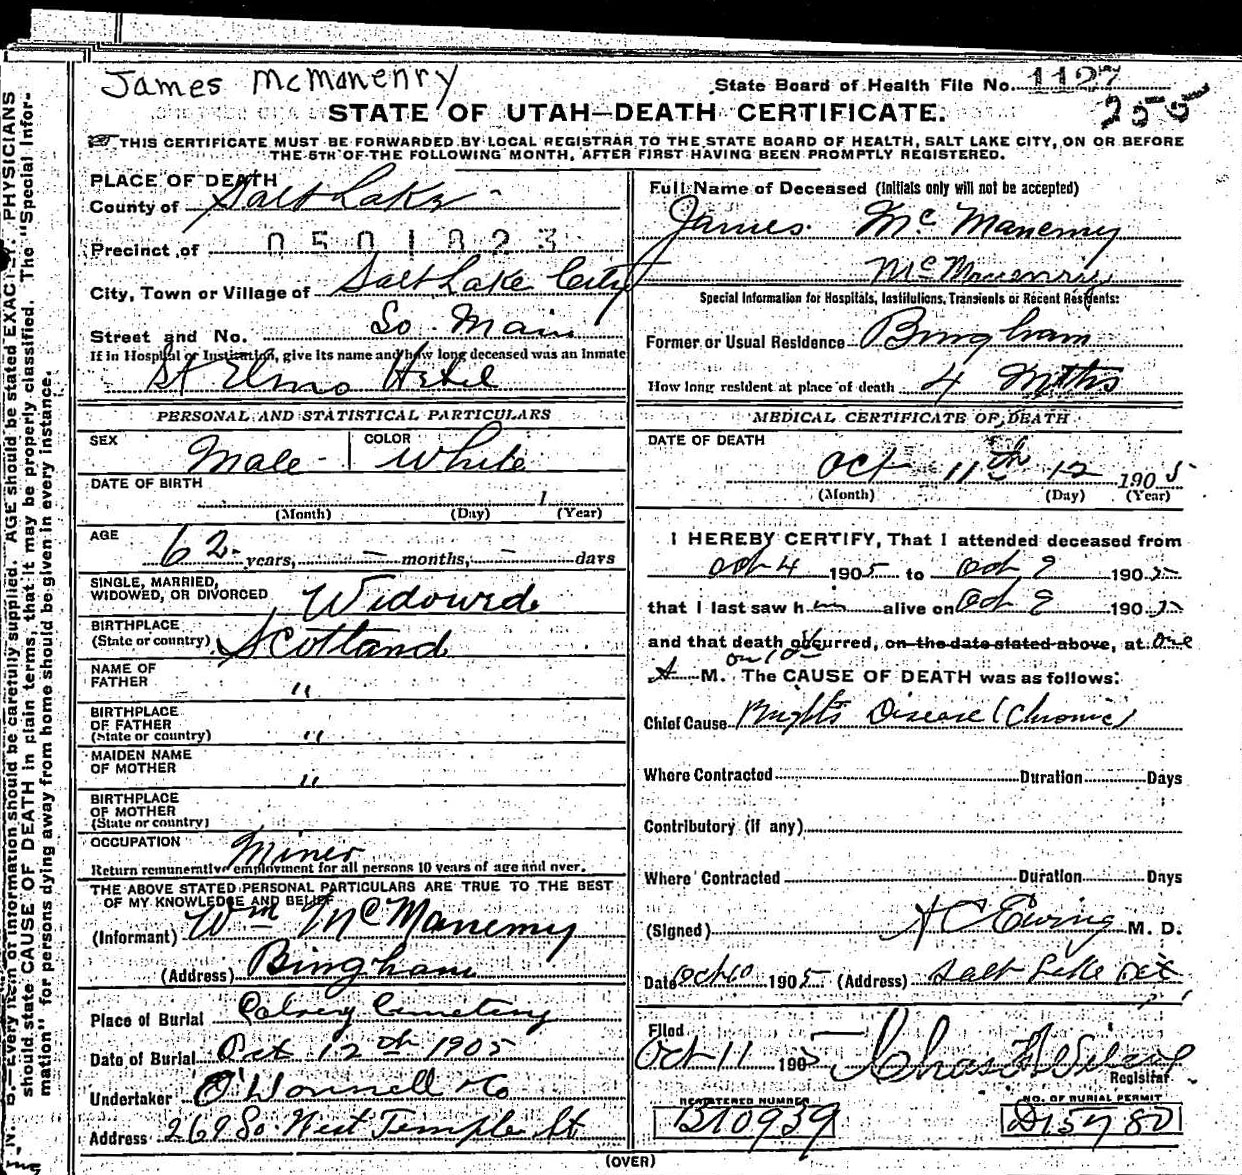 James McManenry
State Board of Health File No. 1127
255
STATE OF UTAH—DEATH CERTIFICATE.
THIS CERTIFICATE MUST BE FORWARDED BY LOCAL REGISTRAR TO THE STATE BOARD OF HEALTH, SALT LAKE CITY, ON OR BEFORE
THE 5TH OF THE FOLLOWING MONTH, AFTER FIRST HAVING BEEN PROMPTLY REGISTERED.
PLACE OF DEATH
County of Salt Lake
Precinct of 0501823
City, Town or Village of Salt Lake City
Street and No. So. Main
If in Hospital or Institution, give its name and how long deceased was an Inmate
St Elmo Hotel
PERSONAL AND STATISTICAL PARTICULARS
SEX Male COLOR White
DATE OF BIRTH 1
(Month) (Day) (Year)
AGE
62 years, — months, — days
SINGLE, MARRIED,
WIDOWED, OR DIVORCED Widowed
BIRTHPLACE
(State or country) Scotland
NAME OF
FATHER "
BIRTHPLACE
OF FATHER
(State or country) "
MAIDEN NAME
OF MOTHER "
BIRTHPLACE
OF MOTHER
(State or country)
OCCUPATION Miner
Return remunerative employment for all persons 10 years of age and over.
THE ABOVE STATED PERSONAL PARTICULARS ARE TRUE TO THE BEST
OF MY KNOWLEDGE AND BELIEF
(Informant) Wm McManemy
(Address) Bingham
Place of Burial Calvery Cemetery
Date of Burial Oct 12th 1905
Undertaker O'Donnell & Co
Address 269 So. West Temple St
Full Name of Deceased (Initials only will not be accepted)
James Mc Manemy
McManenry
Special Information for Hospitals, Institutions, Transients or Recent Residents:
Former or Usual Residence Bingham
How long resident at place of death 4 Mths
MEDICAL CERTIFICATE OF DEATH
DATE OF DEATH
Oct 11th 12 1905
(Month) (Day) (Year)
I HEREBY CERTIFY, That I attended deceased from
Oct 4 1905 to Oct 9 1905
that I last saw him alive on Oct 9 1905
and that death occurred, on the date stated above, at One
on 10
A M. The CAUSE OF DEATH was as follows:
Chief Cause Brights Disease (Chronic)
Where Contracted Duration Days
Contributory (if any)
Where Contracted Duration Days
(Signed) Ewing M. D.
Date Oct 10 1905 (Address) Salt Lake
Filed
Oct 11 1905 Chas
Registrar
REGISTERED NUMBER
B10939
NO. OF BURIAL PERMIT
D15780
(OVER)
N. B.—Every item of information should be carefully supplied. AGE should be stated EXACTLY. PHYSICIANS
should state CAUSE OF DEATH in plain terms, that it may be properly classified. The "Special Infor-
mation" for persons dying away from home should be given in every instance.